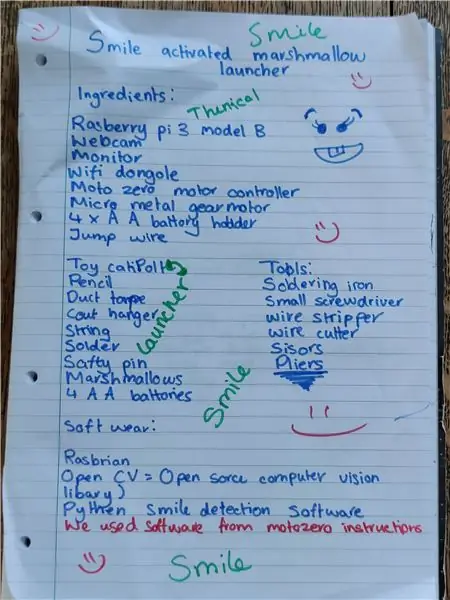 Smile
Smile activated marshmallow
launcher
Ingredients:
Thenical
Rasberry pi 3 model B
Webcam
Monitor
Wifi dongole
Moto zero motor controller
Micro metal gearmotor
4 x A A battory hodder
Jump wire
Toy catiPollt
Pencil
Duct tarpe
Cout harger
String
Solder
Safty pin
Marshmallows
4 A A battories
Launcher
Tools:
Soldering iron
Small screwdriver
wire stripper
wire cutter
Sisors
Pliers
Smile
Soft wear:
Rasbrian
Open CV = Open sorce computer vision
libary)
Pythen Smile detection Software
We used software from motozero instructions
Smile